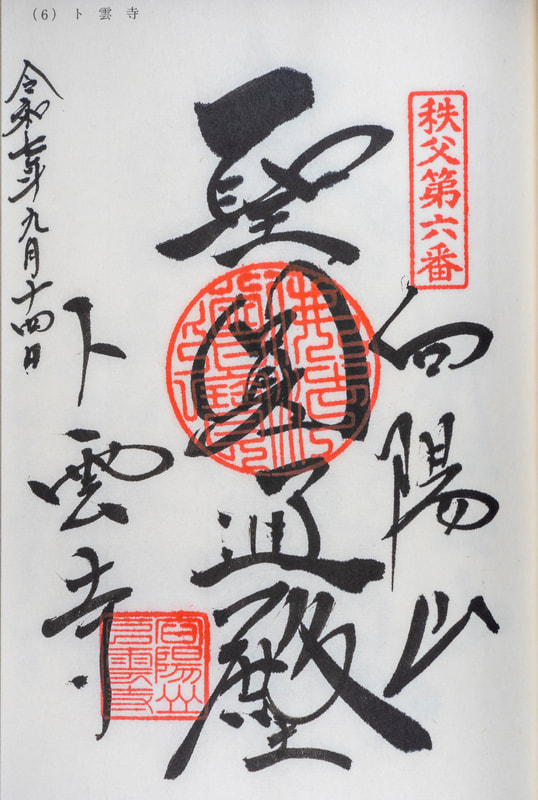 (6) 卜雲寺
秩父第六番
向陽山
聖圓通殿
卜雲寺
向陽山
卜雲寺
令和七年九月十四日